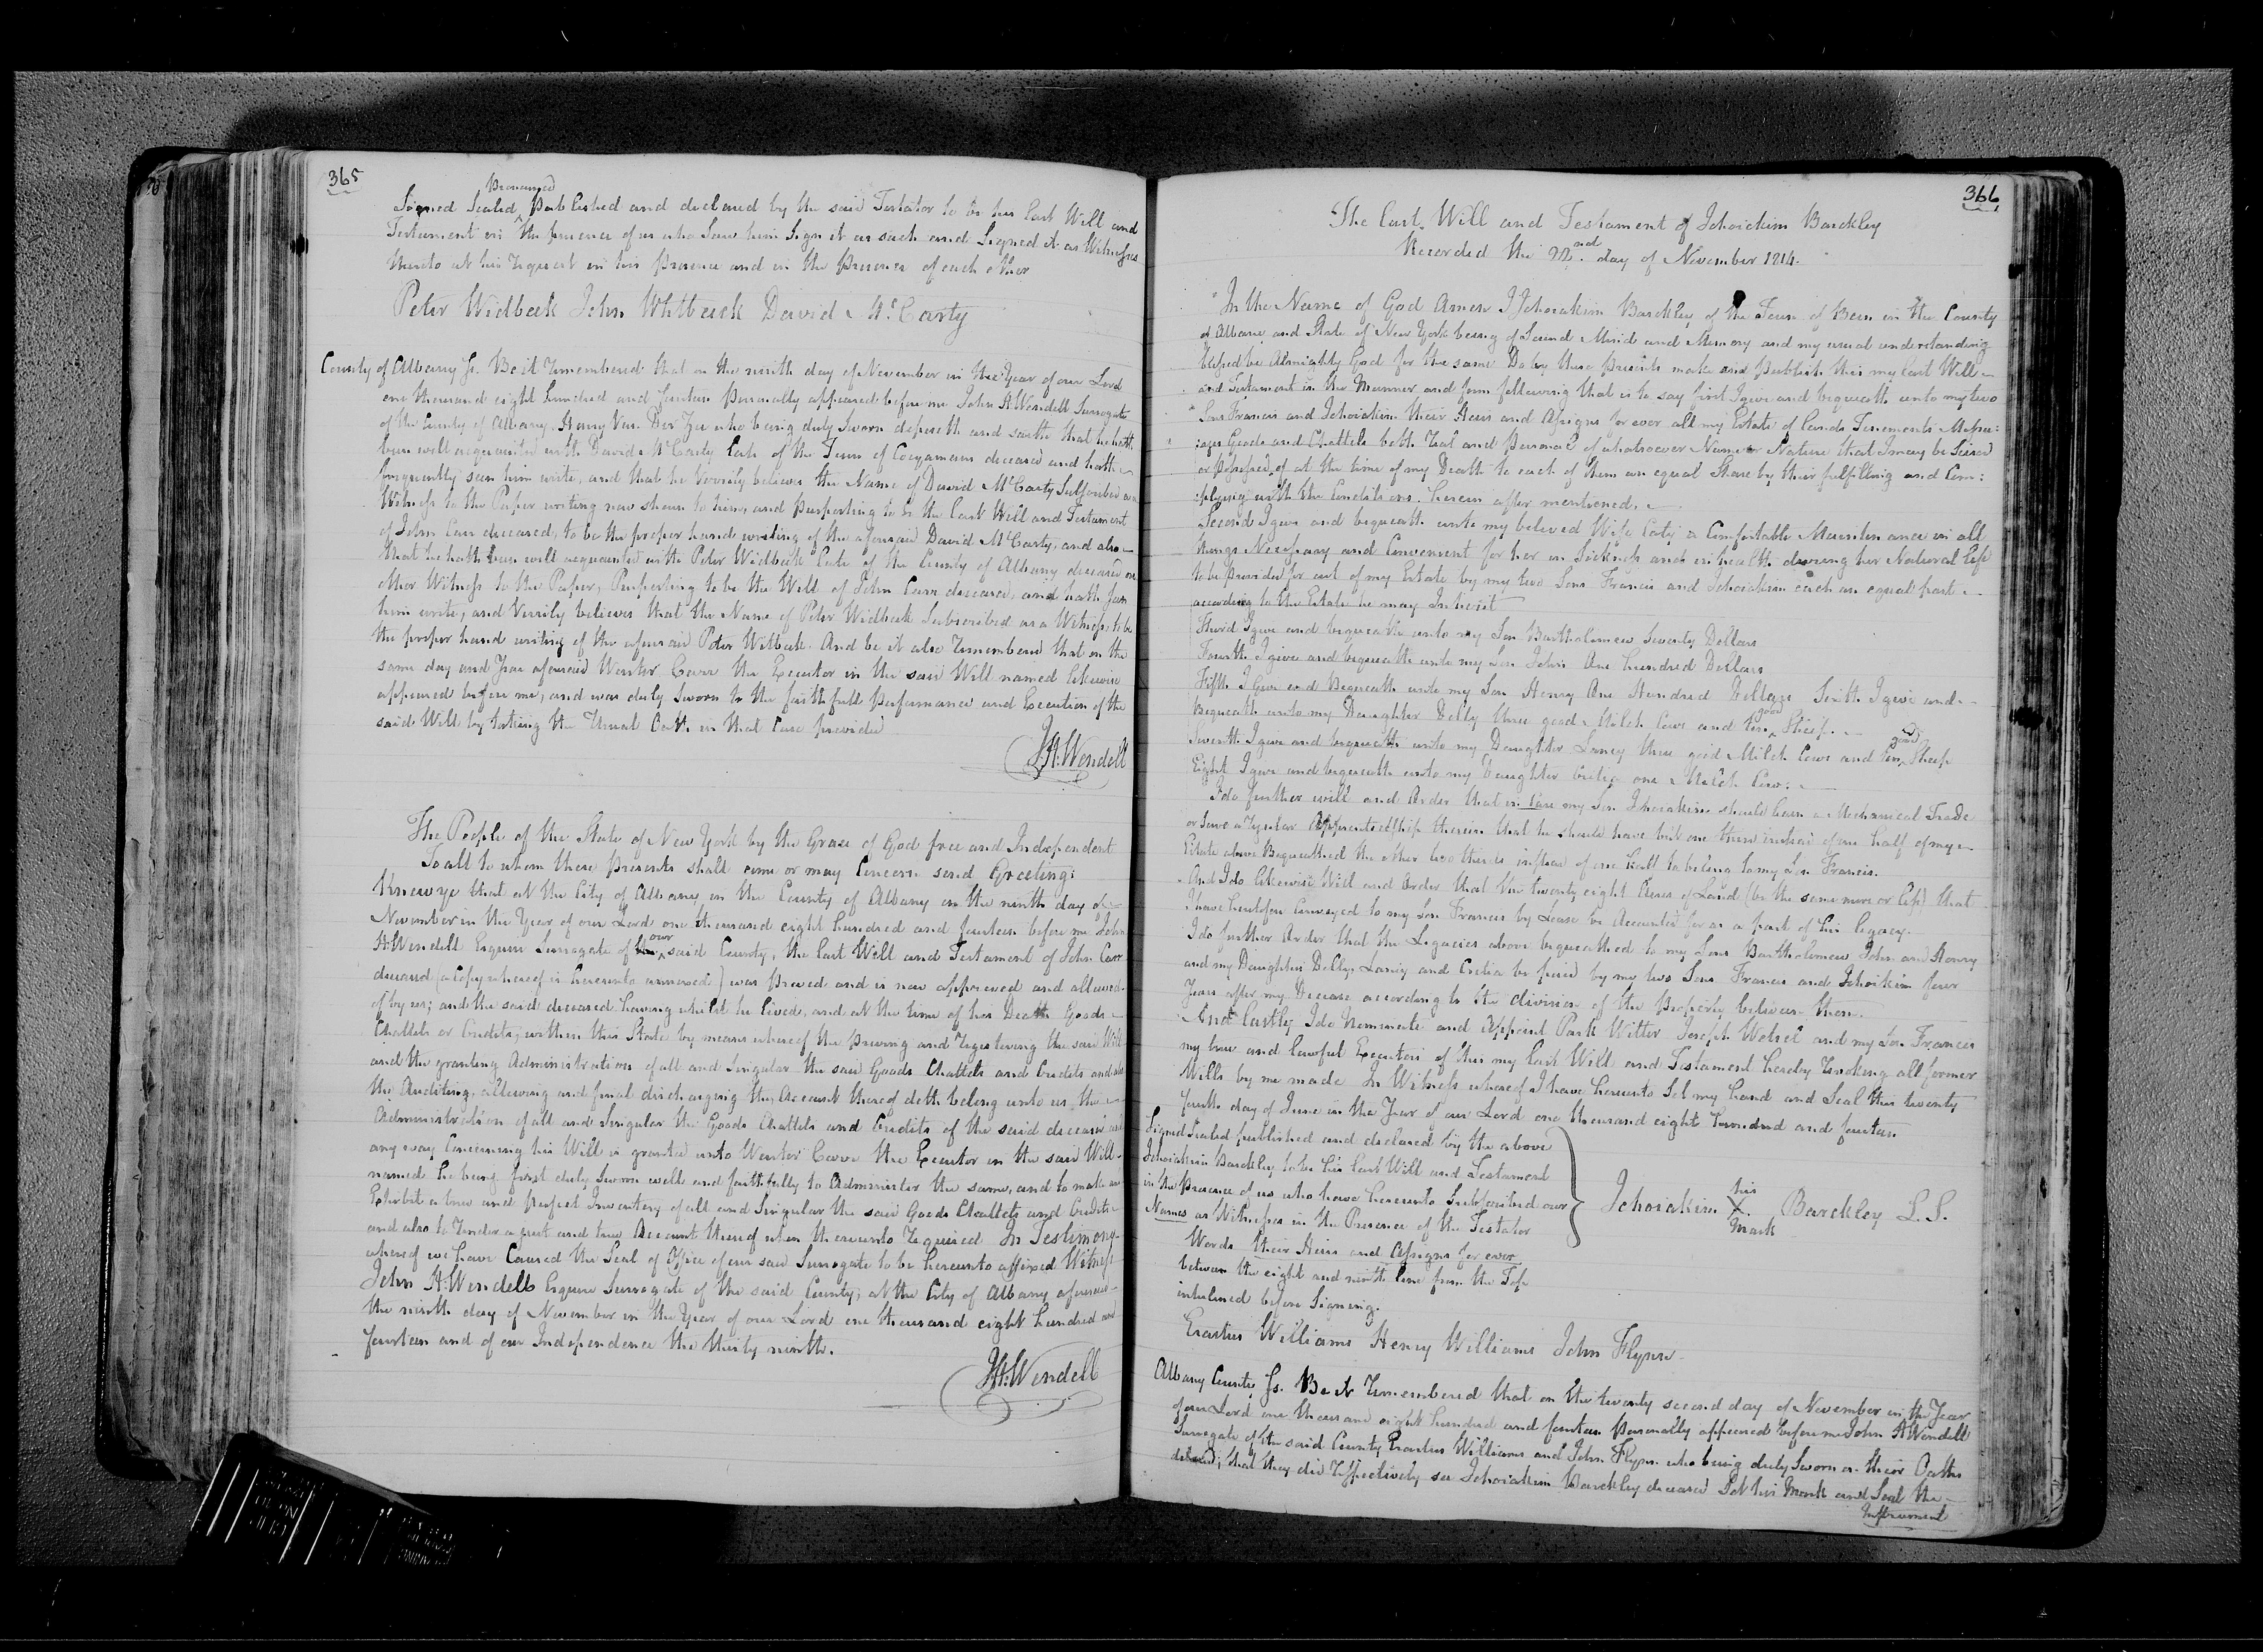 365
Pronounced
Signed Sealed Published and declared by the said Testator to be his last Will and
Testament in the presence of us who saw him Sign it as such and Signed it as Witnesses
thereto at his request in his presence and in the Presence of each other
Peter Widbeck John Whitbeck David McCarty
County of Albany Ss. Be it remembered that on the ninth day of November in the Year of our Lord
one thousand eight hundred and fourteen Personally appeared before me John H Wendell Surrogate
of the County of Albany, Henry Van Der Zee who being duly Sworn deposeth and saith that he hath
been well acquainted with David McCarty Late of the Town of Coeymans deceased and hath
frequently seen him write, and that he Verrily believes the Name of David McCarty Subscribed as a
Witness to the Paper writing now shown to him, and Purporting to be the Last Will and Testament
of John Carr deceased, to be the proper hand writing of the aforesaid David McCarty, and also
that he hath been well acquainted with Peter Widbeck Late of the County of Albany deceased one
other Witness to the Paper, Purporting to be the Will of John Carr deceased, and hath seen
him write, and Verrily believes that the Name of Peter Widbeck Subscribed as a Witness, to be
the proper hand writing of the aforesaid Peter Witbeck. And be it also remembered that on the
same day and Year aforesaid Wenter Carr the Executor in the said Will named likewise
appeared before me, and was duly Sworn to the faithfull Performance and Execution of the
said Will by taking the Usual Oath in that Case provided
J.H. Wendell
The People of the State of New York by the Grace of God free and Independent
To all to whom these Presents shall come or may Concern send Greeting:
Know ye that at the City of Albany in the County of Albany on the ninth day of
November in the Year of our Lord one thousand eight hundred and fourteen before me John
H Wendell Esquire Surrogate of our said County, the last Will and Testament of John Carr
deceased (a Copy whereof is hereunto annexed) was Proved and is now approved and allowed
of by us; and the said deceased having whilst he lived, and at the time of his Death Goods
Chattels or Credits, within this State by means whereof the Proving and registering the said Will
and the granting Administration of all and Singular the said Goods Chattels and Credits and also
the Auditing, allowing and final discharging the Account thereof doth belong unto us, the
Administration of all and Singular the Goods Chattels and Credits of the said deceased and
any way Concerning his Will is granted unto Wenter Carr the Executor in the said Will
named he being first duly Sworn well and faithfully to Administer the same, and to make and
Exhibit a true and perfect Inventory of all and Singular the said Goods Chattels and Credits
and also to render a just and true Account thereof when thereunto required In Testimony
whereof we have Caused the Seal of Office of our said Surrogate to be hereunto affixed Witness
John H. Wendell Esquire Surrogate of the said County, at the City of Albany aforesaid
the ninth day of November in the Year of our Lord one thousand eight hundred and
fourteen and of our Independence the thirty ninth.
J.H. Wendell
366
The Last Will and Testament of Jehoiakim Barckley
Recorded the 22nd. day of November 1814.
In the Name of God Amen I Jehoiakim Barckley of the Town of Bern in the County
of Albany and State of New York being of Sound Mind and Memory and my usual understanding
blessed be Almighty God for the same Do by these Presents make and Publish this my last Will
and Testament in the Manner and form following that is to say first I give and bequeath unto my two
Sons Francis and Jehoiakim their Heirs and Assigns for ever all my Estate of Lands Tenements Messu:
:ages Goods and Chattels both real and Personal of whatsoever Name or Nature that I may be Seized
or Possessed of at the time of my Death to each of them an equal Share by their fulfilling and Com:
:plying with the Conditions herein after mentioned.
Second I give and bequeath unto my beloved Wife Caty a Comfortable Maintenance in all
things Necessary and Convenient for her in Sickness and in health during her Natural life
to be Provided for out of my Estate by my two Sons Francis and Jehoiakim each an equal part
according to the Estate he may Inherit
Third I give and bequeath unto my Son Bartholomew Seventy Dollars
Fourth I give and bequeath unto my Son John One hundred Dollars
Fifth I Give and Bequeath unto my Son Henry One Hundred Dollars Sixth I give and
Bequeath unto my Daughter Dolly three good Milch Cows and ten good Sheep.
Seventh I give and bequeath unto my Daughter Laney three good Milch Cows and ten good Sheep
Eight I give and bequeath unto my Daughter Cretia one Milch Cow.
I do further will and Order that in Case my Son Jehoiakim should learn a Mechanical Trade
or Serve a regular Apprenticeship therein that he should have but one third instead of one half of my
Estate above Bequeathed the other two thirds instead of one half to belong to my Son Francis.
And I do likewise Will and Order that the twenty eight Acres of Land (be the same more or less) that
I have heretofore Conveyed to my Son Francis by Lease be Accounted for as a part of his legacy.
I do further Order that the Legacies above bequeathed to my Sons Bartholomew John and Henry
and my Daughters Dolly, Laney and Cretia be paid by my two Sons Francis and Jehoikim four
Years after my Decease according to the division of the Property between them.
And lastly I do Nominate and Appoint Park Witter Joseph Wolsel and my Son Francis
my true and lawful Executors of this my last Will and Testament hereby revoking all former
Wills by me made In Witness whereof I have hereunto Set my hand and Seal this twenty
fourth day of June in the Year of our Lord one thousand eight hundred and fourteen
Signed Sealed published and declared by the above
Jehoiakim Barckley to be his last Will and Testament
in the Presence of us who have hereunto Subscribed our
Names as Witnesses in the Presence of the Testator
Jehoiakim his X mark Barckley L.S.
Words their Heirs and Assigns for ever
between the eight and ninth line from the Top
interlined before Signing.
Erastus Williams Henry Williams John Flynn
Albany County Ss. Be it remembered that on the twenty second day of November in the Year
of our Lord one thousand eight hundred and fourteen Personally appeared before me John H Wendell
Surrogate of the said County Erastus Williams and John Flynn who being duly Sworn on their Oaths
declared, that they did respectively see Jehoiakim Barckley deceased Set his Mark and Seal the
Instrument